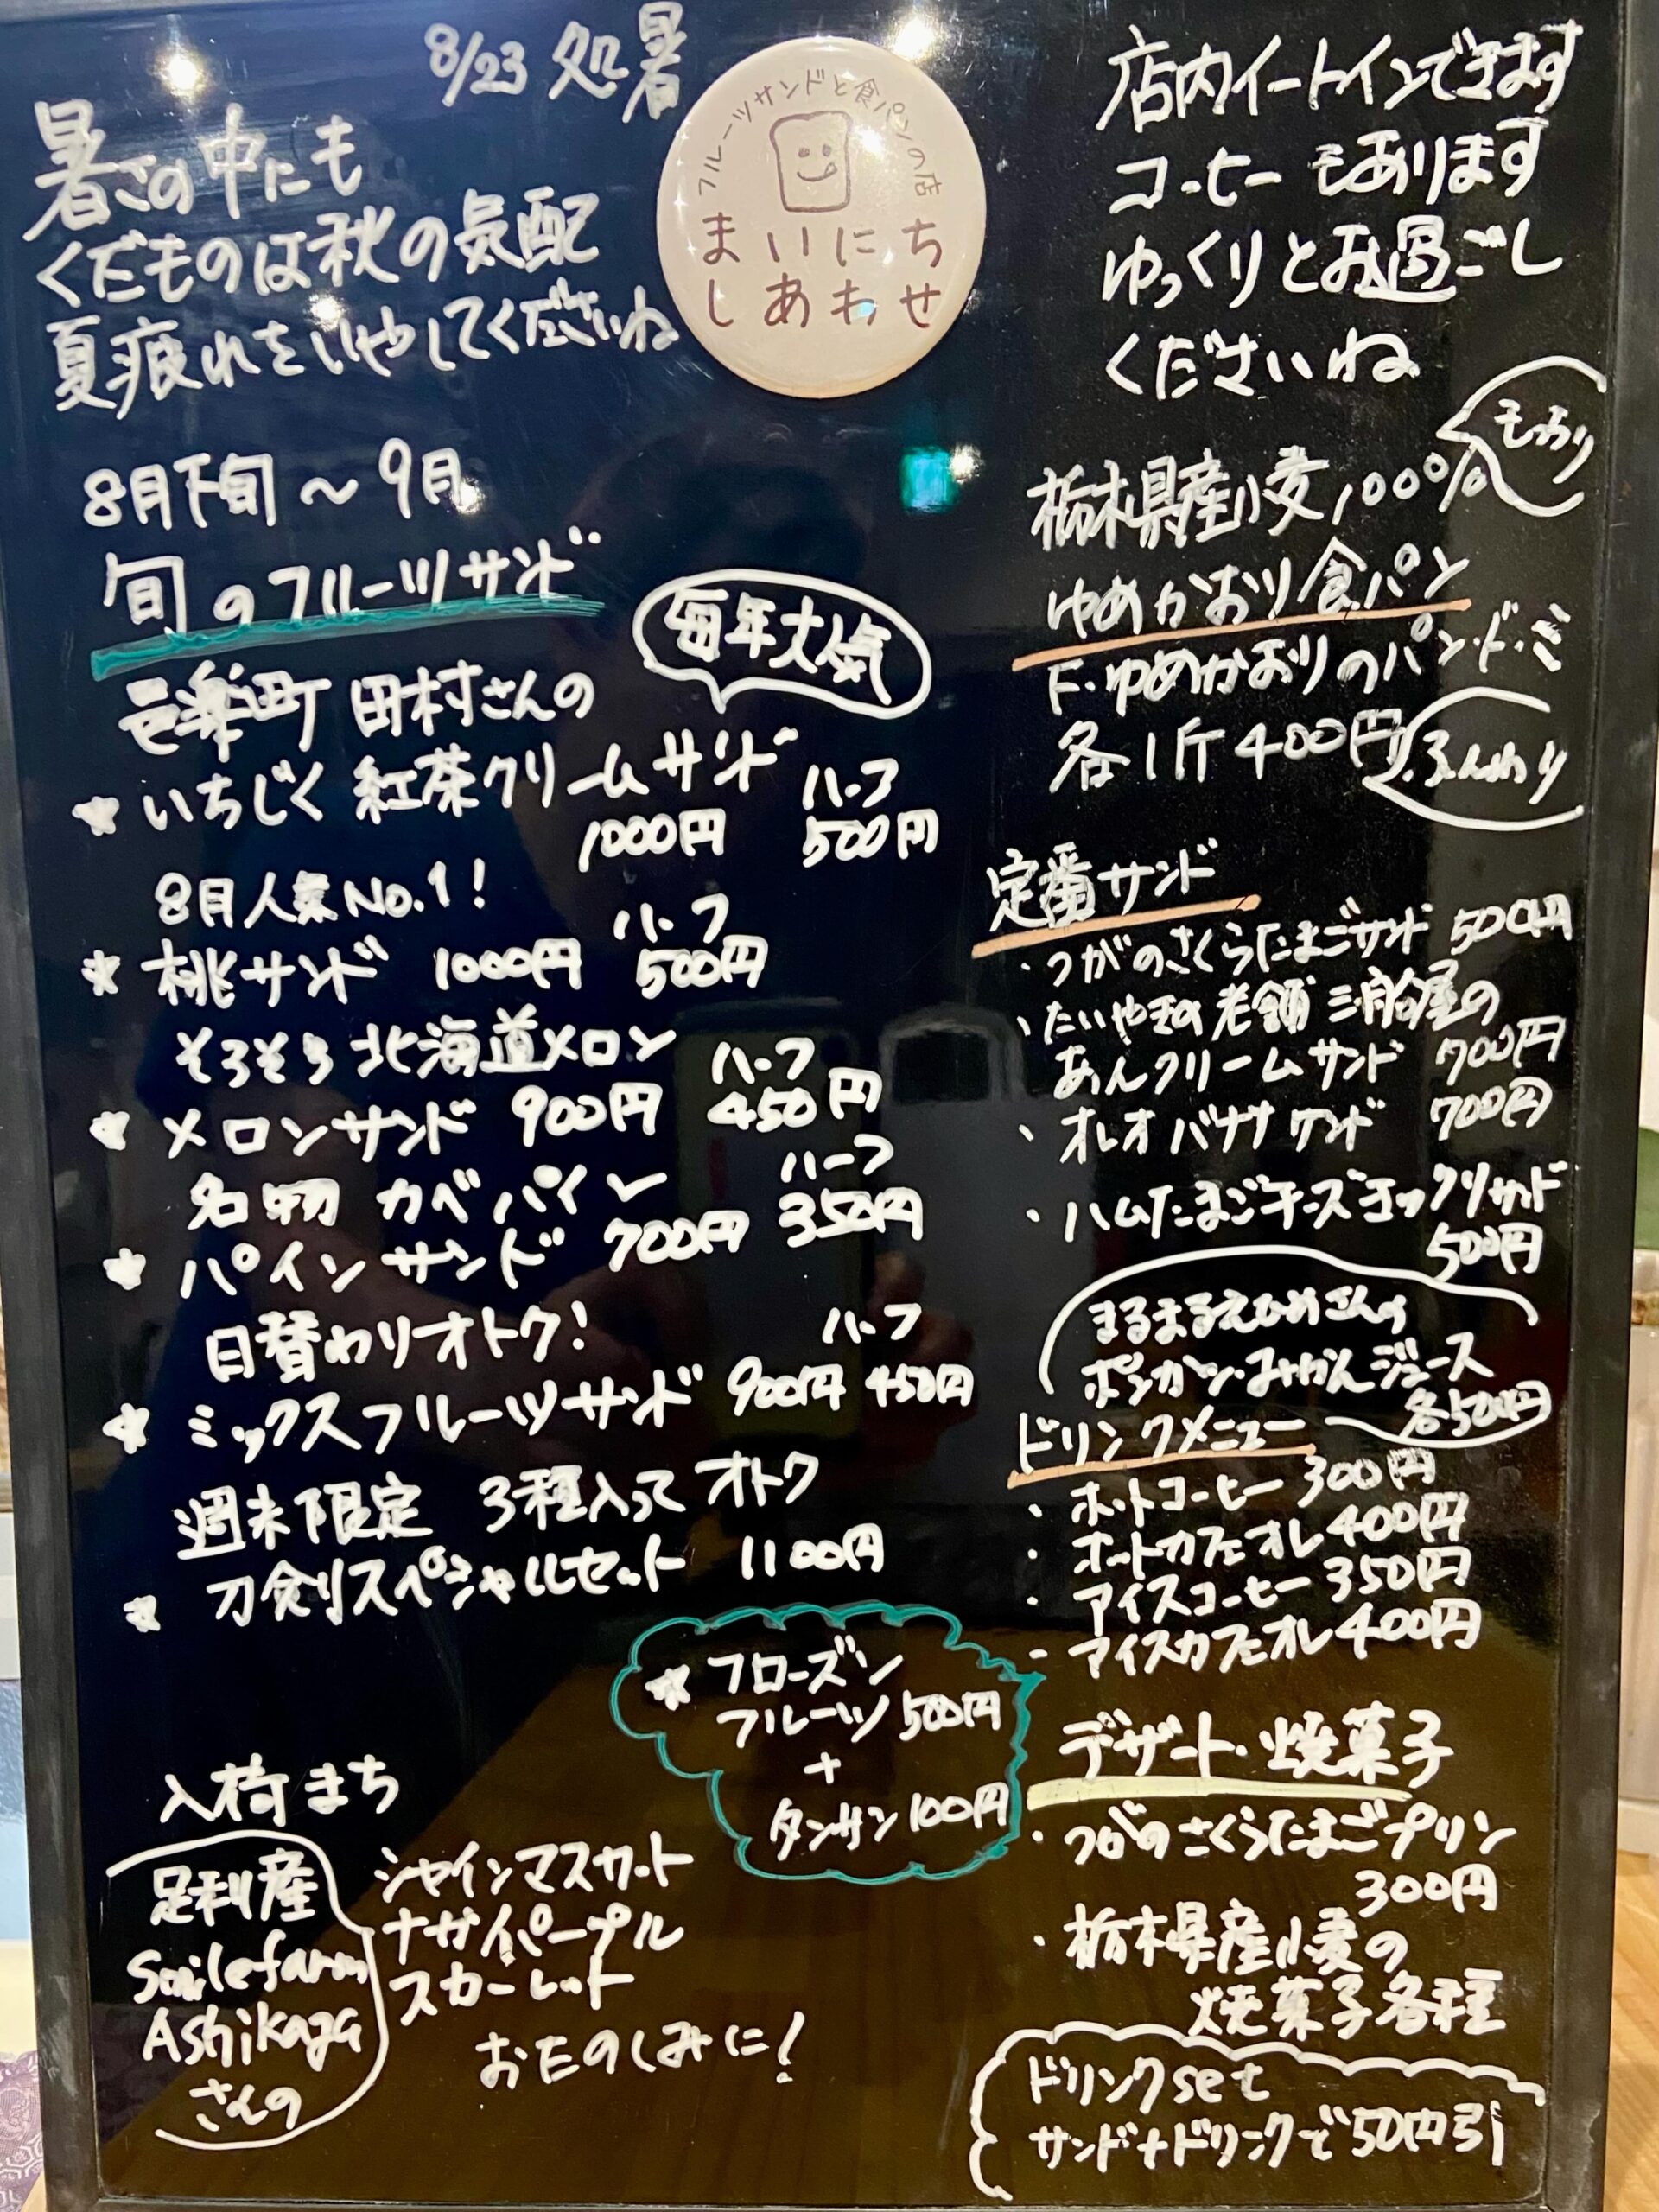 8/23 処暑
暑さの中にも
くだものは秋の気配
夏疲れをいやしてくださいね
フルーツサンドと食パンの店
まいにち
しあわせ
店内イートインできます
コーヒーもあります
ゆっくりとお過ごし
くださいね
8月下旬〜9月
旬のフルーツサンド
毎年大人気
壱楽町 田村さんの
★いちじく紅茶クリームサンド ハーフ
1000円 500円
8月人気No.1!
ハーフ
★桃サンド 1000円 500円
そろそろ北海道メロン ハーフ
★メロンサンド 900円 450円
名物 カベパイン ハーフ
★パインサンド 700円 350円
日替わりオトク! ハーフ
★ミックスフルーツサンド 900円 450円
週末限定 3種入って オトク
★刀剣スペシャルセット 1100円
★フローズン
フルーツ 500円
+
タンサン 100円
入荷まち
足利産
Smilefarm
Ashikaga
さんの
シャインマスカット
ナガノパープル
スカーレット
おたのしみに!
もっちり
栃木県産小麦100%
ゆめかおり食パン
F・ゆめかおりのパン・ド・ミ
各1斤400円
ふんわり
定番サンド
・つがのさくらたまごサンド 500円
・たいやきの老舗 三船屋の
あんクリームサンド 700円
・オレオバナナサンド 700円
・ハムたまごチーズミックスサンド
500円
まるまるえひめさんの
ポンカン・みかんジュース
各500円
ドリンクメニュー
・ホットコーヒー 300円
・ホットカフェオレ 400円
・アイスコーヒー 350円
・アイスカフェオレ 400円
デザート・焼菓子
・つがのさくらたまごプリン
300円
・栃木県産小麦の
焼菓子各種
ドリンクset
サンド+ドリンクで50円引